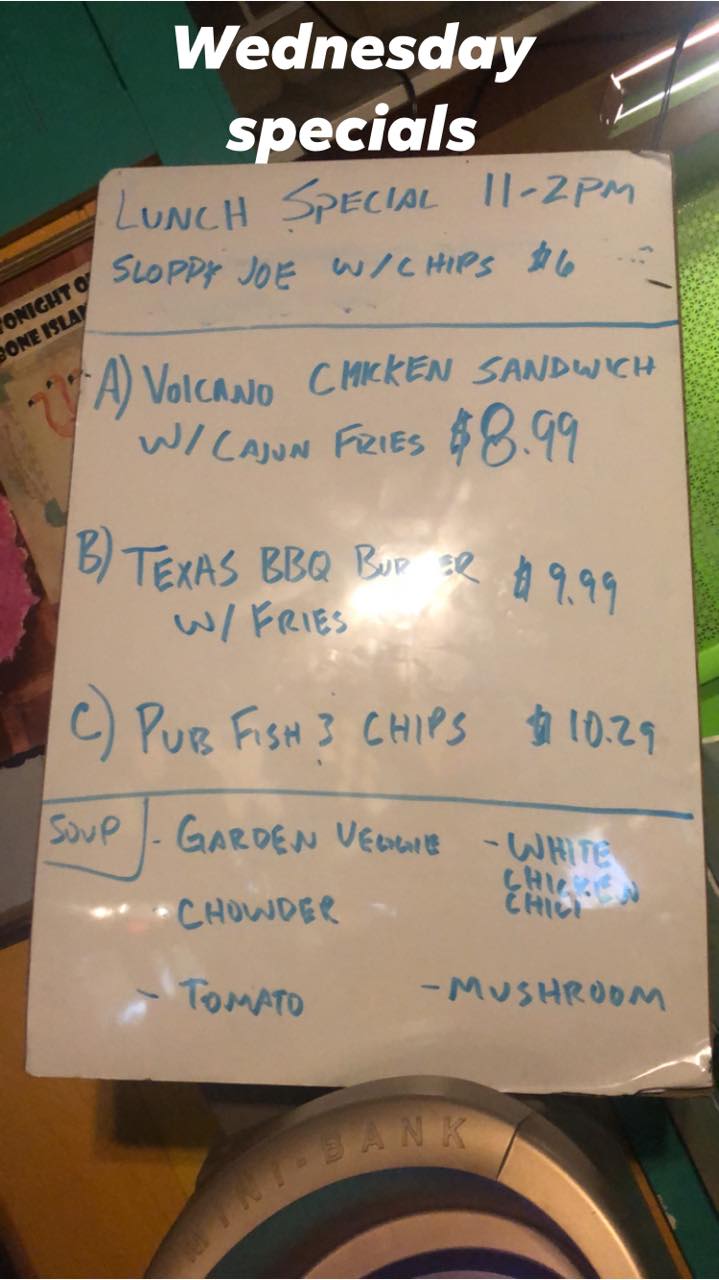 Wednesday
specials
LUNCH SPECIAL 11-2PM
SLOPPY JOE W/CHIPS $6
TONIGHT O
BONE ISLA
A) VOLCANO CHICKEN SANDWICH
W/CAJUN FRIES $8.99
B) TEXAS BBQ BURGER $9.99
W/ FRIES
C) PUB FISH & CHIPS $10.29
SOUP - GARDEN VEGGIE - WHITE
CHICKEN
CHILI
- CHOWDER
- TOMATO - MUSHROOM
MINI-BANK